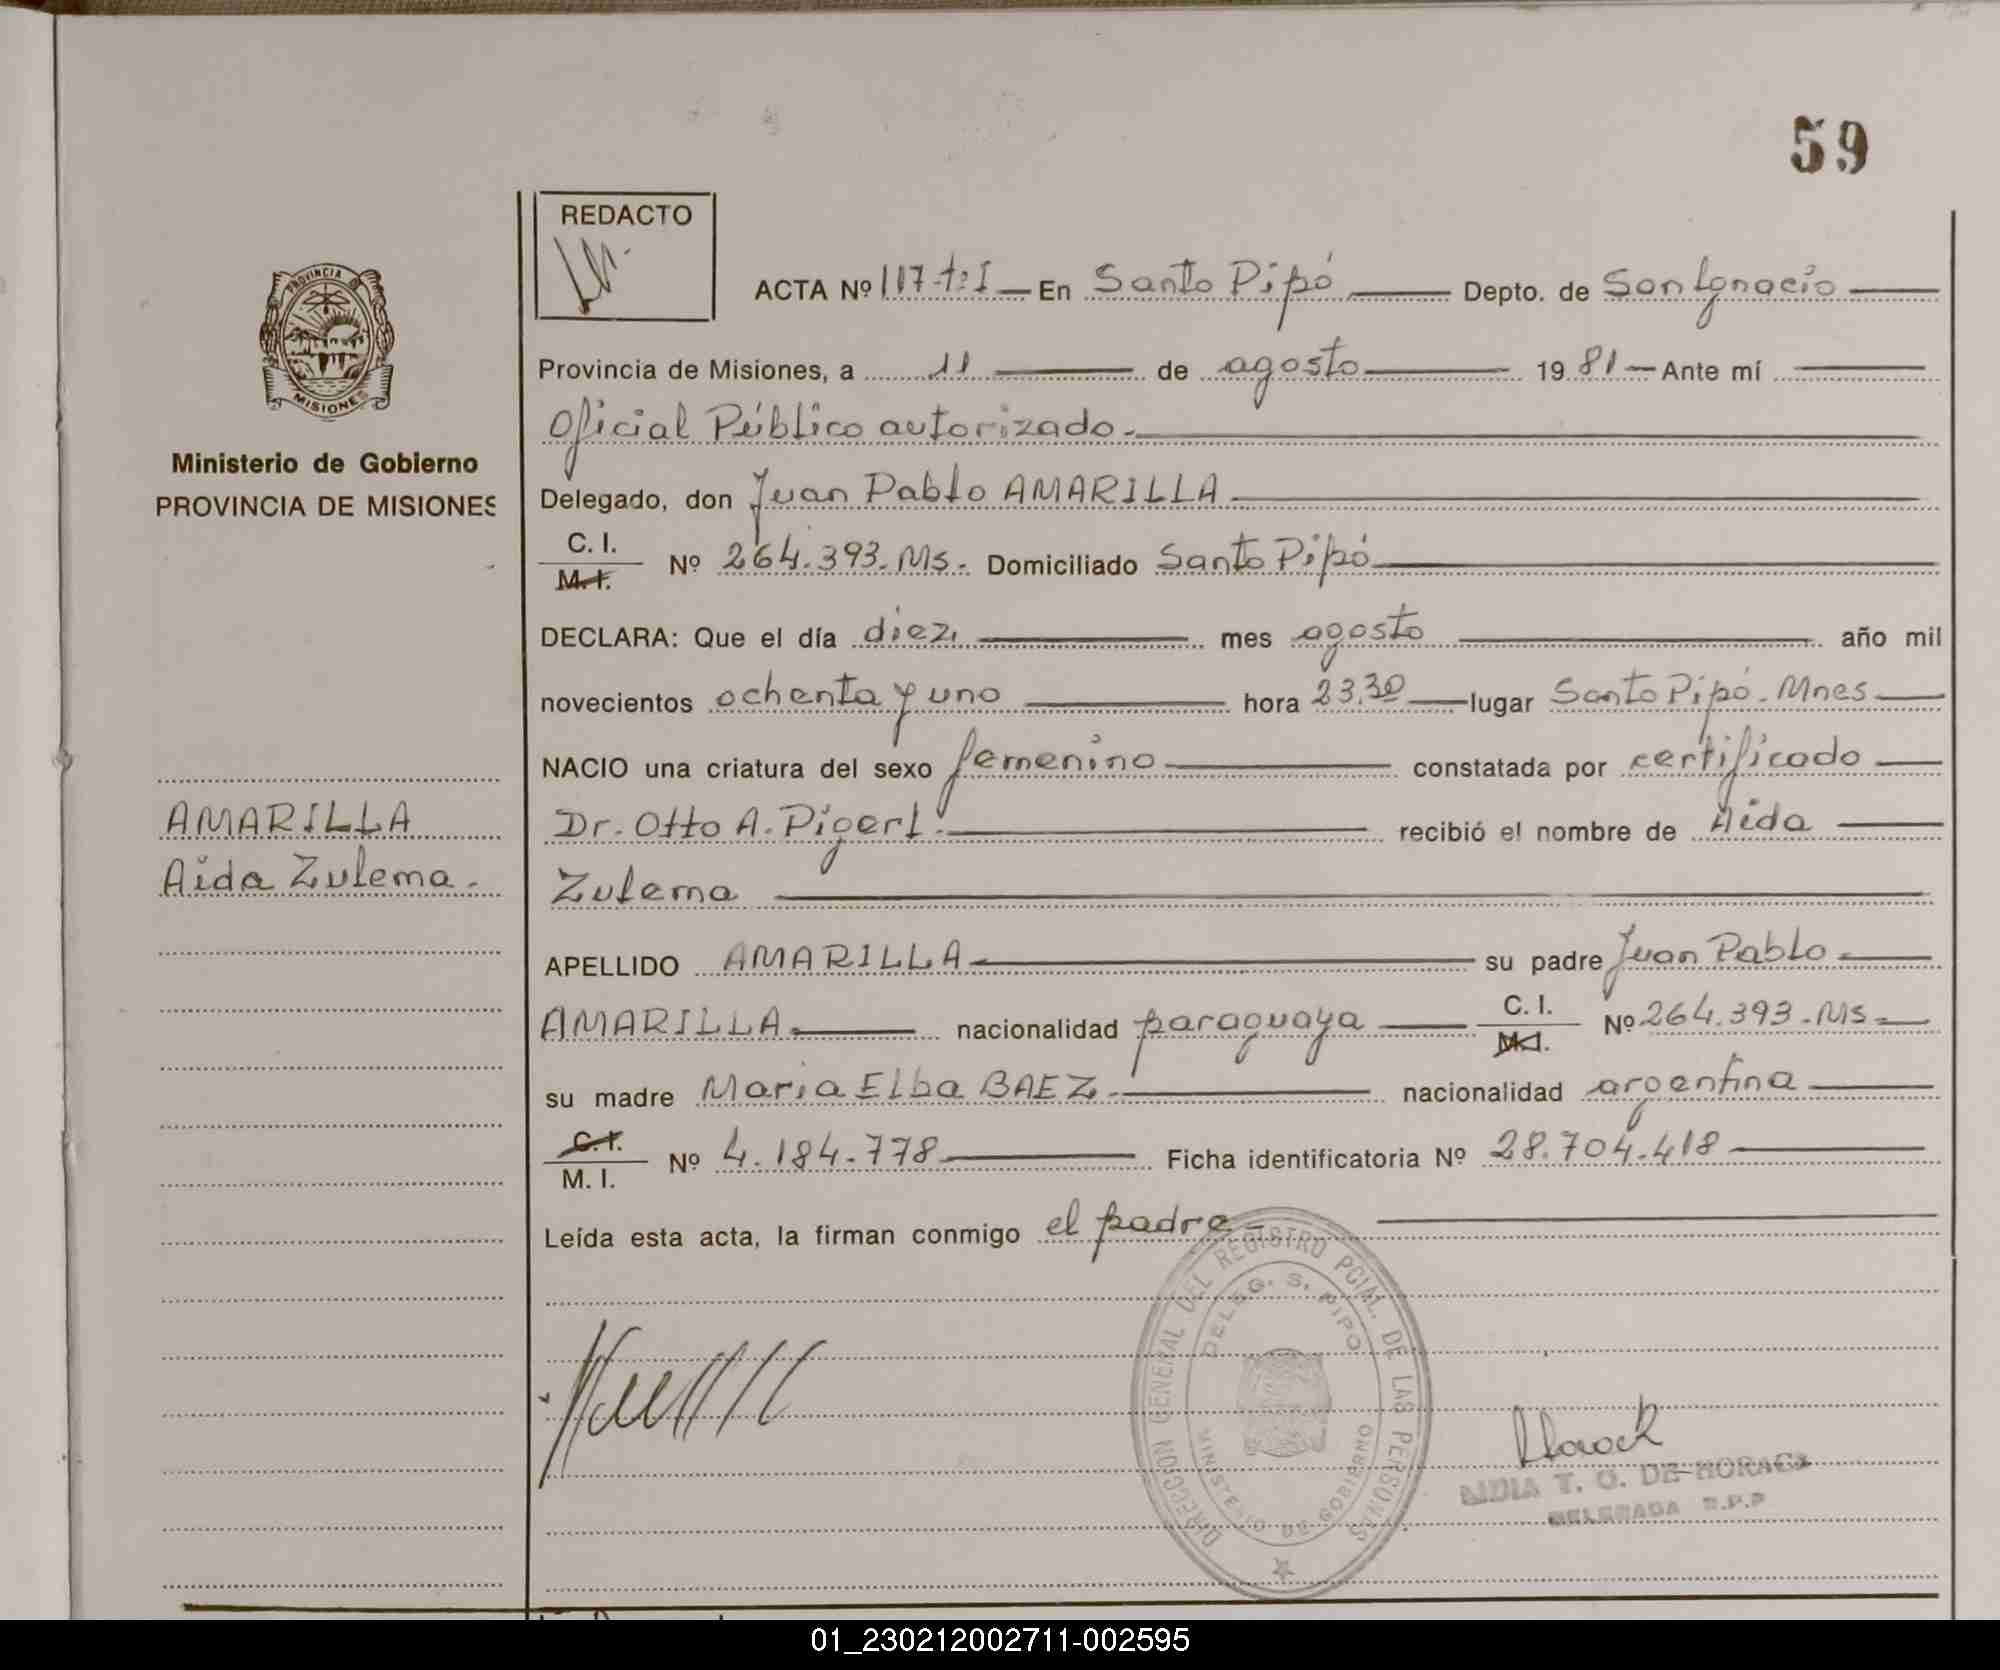 59
REDACTO
PROVINCIA
MISIONES
Ministerio de Gobierno
PROVINCIA DE MISIONES
ACTA Nº 117-t:I — En Santo Pipó Depto. de San Ignacio
Provincia de Misiones, a 11 de agosto 1981 — Ante mí
Oficial Público autorizado.
Delegado, don Juan Pablo AMARILLA
C. I.
M. I.
Nº 264.393.Ms. Domiciliado Santo Pipó
DECLARA: Que el día diez mes agosto año mil
novecientos ochenta y uno hora 23.30 lugar Santo Pipó. Mnes
NACIO una criatura del sexo femenino constatada por certificado
Dr. Otto A. Pigerl. recibió el nombre de Aida
Zulema
AMARILLA
Aida Zulema.
APELLIDO AMARILLA su padre Juan Pablo
AMARILLA nacionalidad paraguaya C. I.
M.I.
Nº 264.393.Ms
su madre Maria Elba BAEZ. nacionalidad argentina
C. I.
M. I.
Nº 4.184.778 Ficha identificatoria Nº 28.704.418
Leída esta acta, la firman conmigo el padre
DIRECCION GENERAL DEL REGISTRO PCIAL. DE LAS PERSONAS
DELEG. S. PIPO
MINISTERIO DE GOBIERNO
T. O. DE
DELEGADA R.P.P
01_230212002711-002595